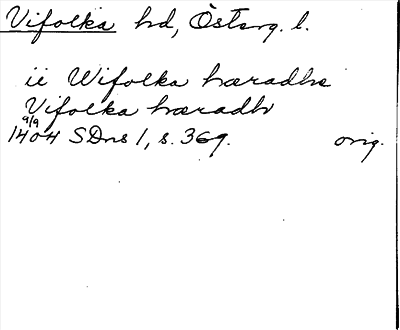 Vifolka hd, Österg. l.
ii Wifolka hæradhe
Vifolka hæradh
9/9
1404 SDns 1, s. 369. orig.